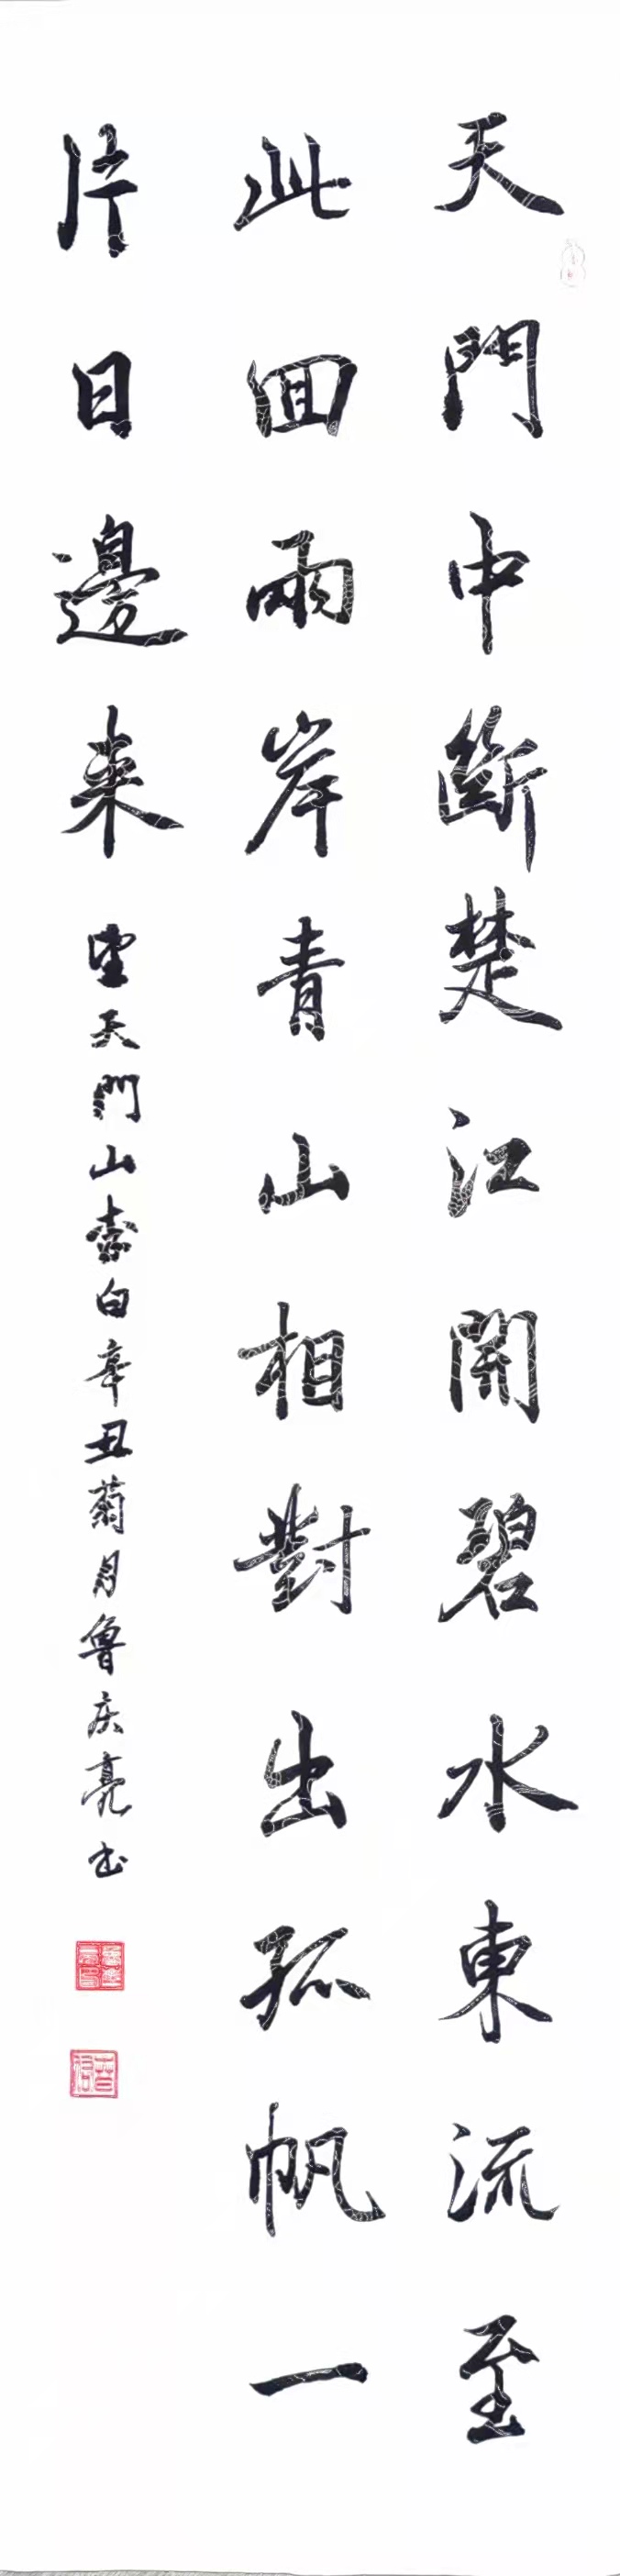 天門中斷楚江開碧水東流至
此回兩岸青山相對出孤帆一
片日邊来 望天門山李白辛丑菊月魯庆亮书